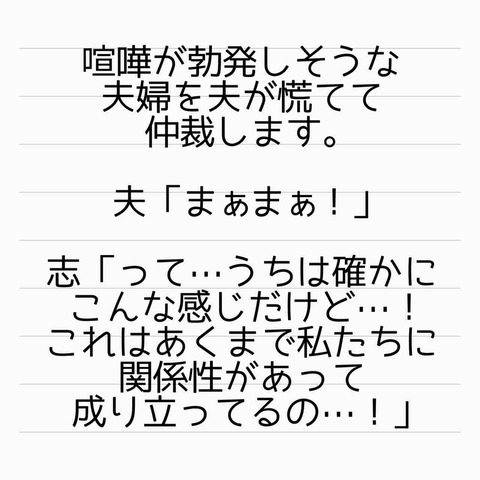 喧嘩が勃発しそうな
夫婦を夫が慌てて
仲裁します。
夫「まぁまぁ！」
志「って…うちは確かに
こんな感じだけど…！
これはあくまで私たちに
関係性があって
成り立ってるの…！」